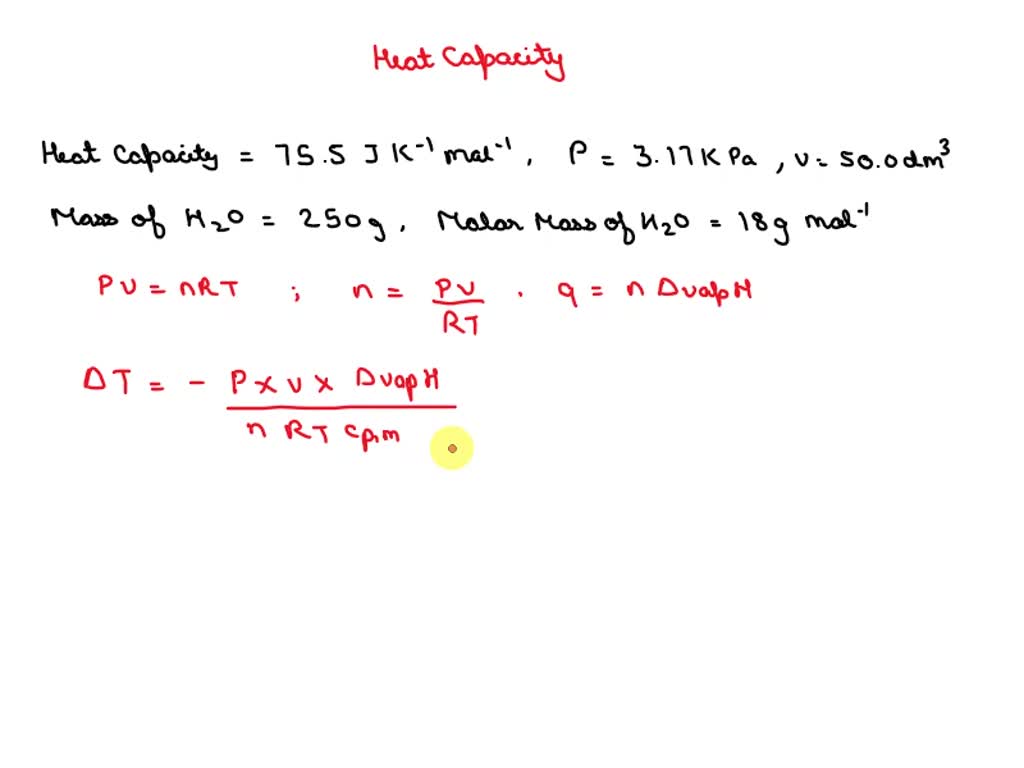 Heat Capacity
Heat Capacity = 75.5 J K⁻¹ mol⁻¹, P = 3.17 K Pa, v = 50.0 dm³
Mass of H₂O = 250g, Molar Mass of H₂O = 18g mol⁻¹
PV = nRT ; n = PV/RT . q = n ΔvapH
ΔT = - P x v x ΔvapH / n RT Cp,m